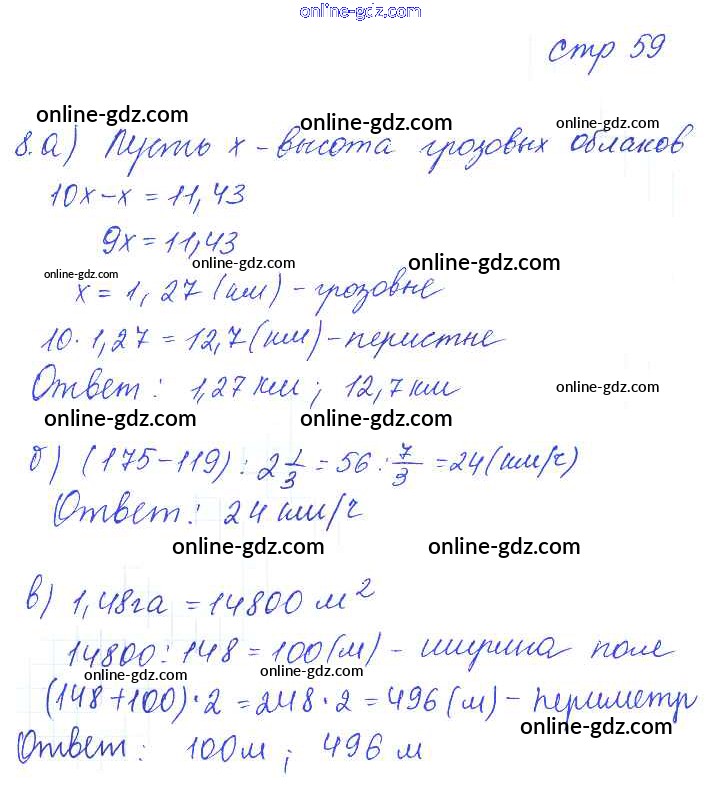 online-gdz.com
стр 59
online-gdz.com online-gdz.com online-gdz.com
8. а) Пусть x - высота грозовых облаков
10x - x = 11,43
9x = 11,43
online-gdz.com online-gdz.com online-gdz.com
x = 1,27 (км) - грозовые
10 · 1,27 = 12,7 (км) - перистые
Ответ: 1,27 км ; 12,7 км
online-gdz.com
online-gdz.com online-gdz.com
б) (175 - 119) : 2 1/3 = 56 : 7/3 = 24 (км/ч)
Ответ: 24 км/ч
online-gdz.com online-gdz.com
в) 1,48 га = 14800 м²
14800 : 148 = 100 (м) - ширина поле
online-gdz.com online-gdz.com
(148 + 100) · 2 = 248 · 2 = 496 (м) - периметр
online-gdz.com
Ответ: 100 м ; 496 м